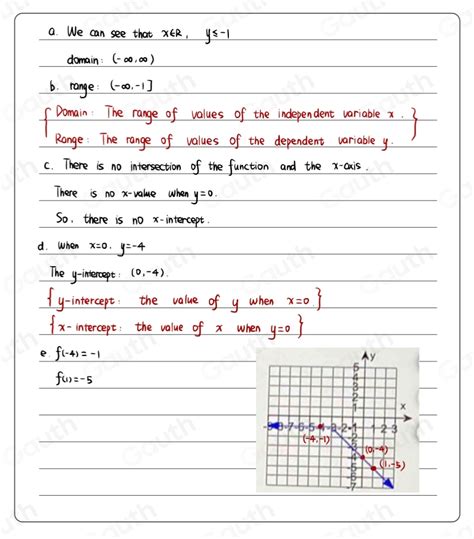 a. We can see that x∈R, y≤-1
domain: (-∞,∞)
b. range: (-∞,-1]
{ Domain: The range of values of the independent variable x. }
{ Range: The range of values of the dependent variable y. }
c. There is no intersection of the function and the x-axis.
There is no x-value when y=0.
So, there is no x-intercept.
d. when x=0, y=-4
The y-intercept: (0,-4).
{ y-intercept: the value of y when x=0 }
{ x-intercept: the value of x when y=0 }
e. f(-4)=-1
f(1)=-5
y
x
(-4,-1)
(0,-4)
(1,-5)
Gauth